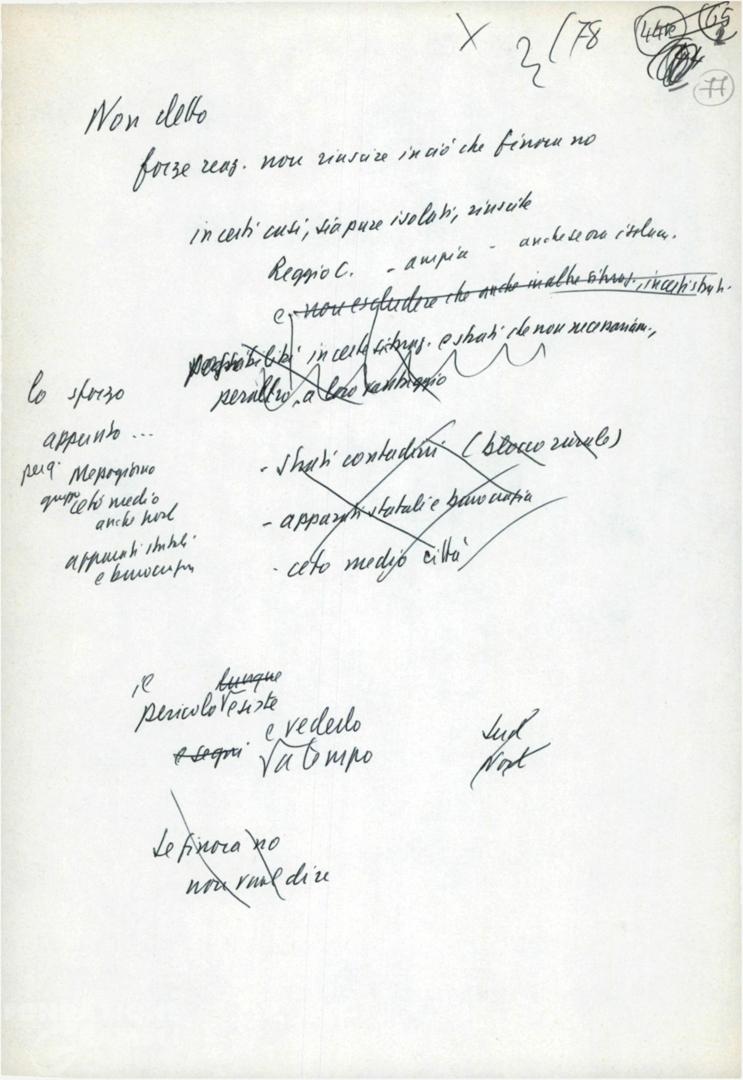 X (78 44 65
77
Non detto
forze reaz. non riuscire in ciò che finora no
in certi casi, sia pure isolati, riuscite
Reggio C. - ampia - anche se ora isolam.
e non escludere che anche in altre situaz., in certi strati.
possibilità in certe situaz. e strati che non necessariam.,
peraltro, a loro vantaggio
lo sforzo
appunto ...
Mezzogiorno
ceto medio
anche nord
apparati statali
e burocrazia
- strati contadini (blocco rurale)
- apparati statali e burocrazia
- ceto medio città
il dunque
pericolo esiste
e vederlo
e segni a tempo
Sud
Nord
Se finora no
non vuol dire